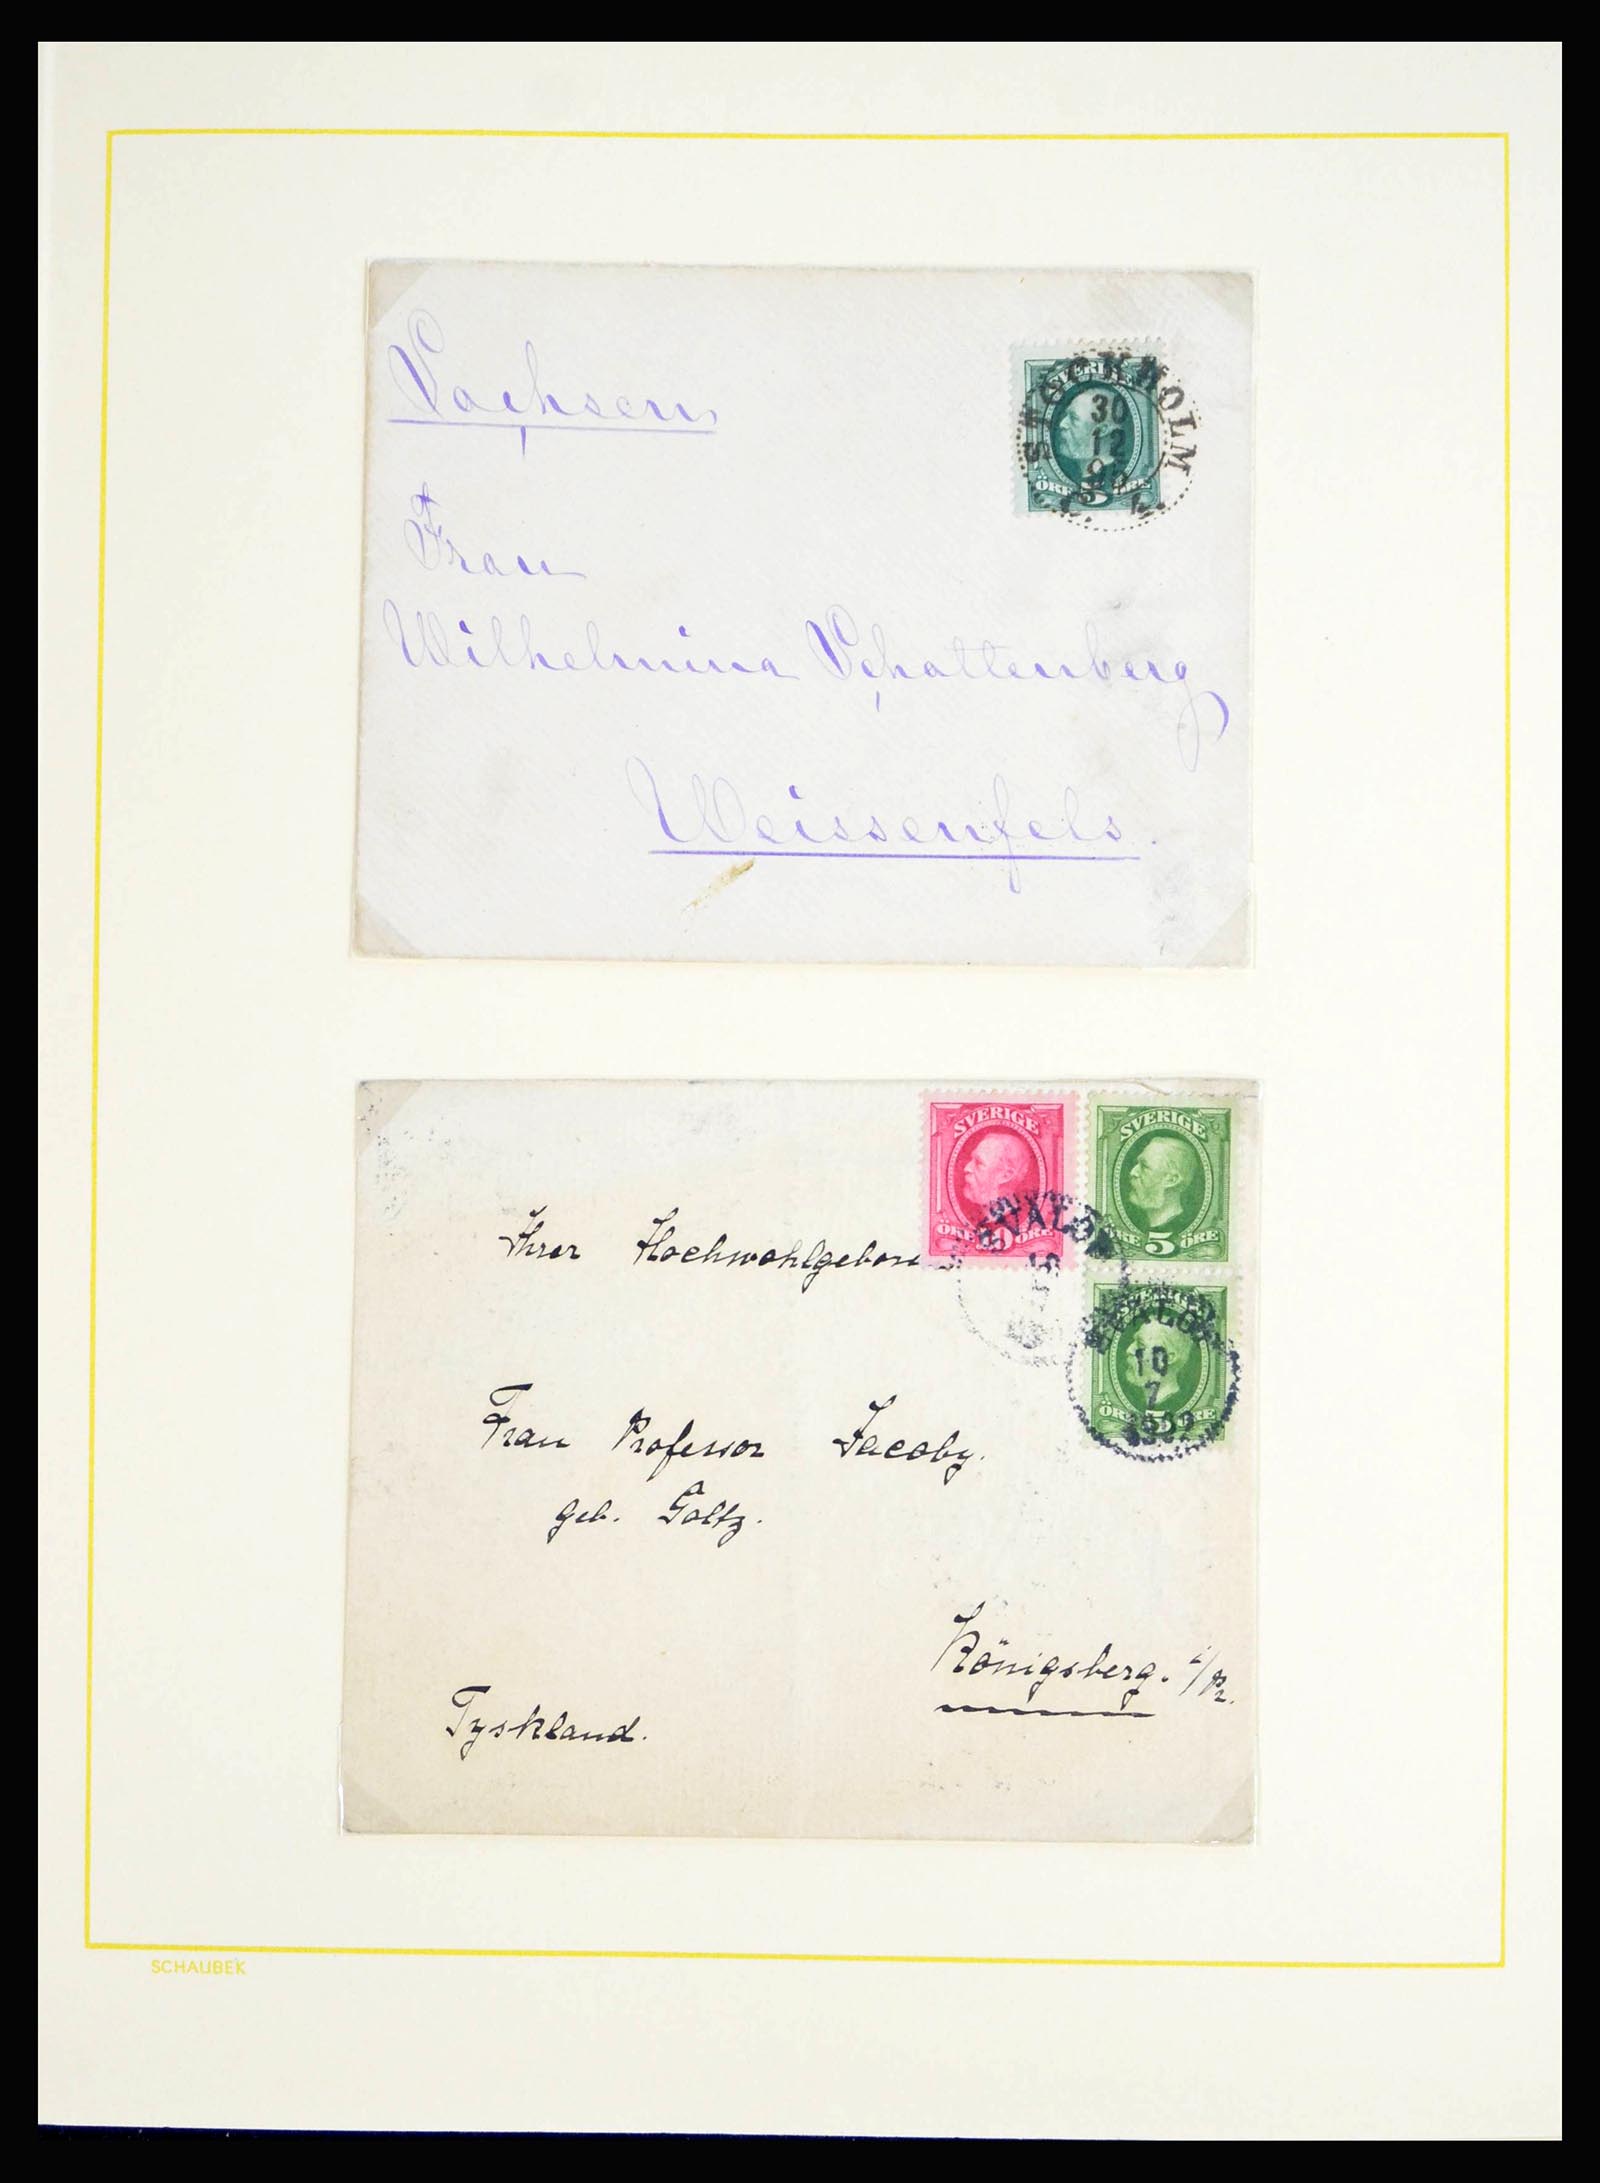 Sachsen
SVERIGE
STOCKHOLM
30
12
ÖRE 5 ÖRE
Frau
Wilhelmina Schattenberg
Weissenfels.
SVERIGE
SVERIGE
ÖRE 10 ÖRE
ÖRE 5 ÖRE
Ihrer Hochwohlgebore
SVERIGE
SVALÖF
10
7
1902
ÖRE 5 ÖRE
Frau Professor Jacoby.
geb. Goltz.
Königsberg. i/Pr.
Tyskland.
SCHAUBEK